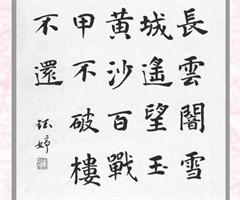 長雲闇雪
城遙望玉
黃沙百戰
甲不破樓
不還